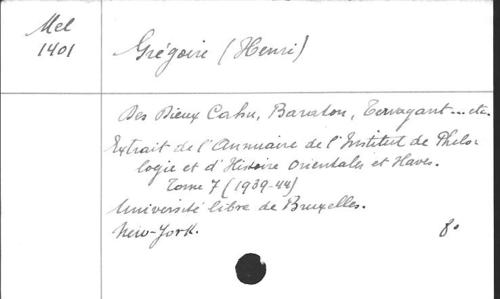 Mel
1401
Grégoire (Henri)
Des Dieux Cahu, Baraton, Tervagant... etc.
Extrait de l'Annuaire de l'Institut de Philo-
logie et d'Histoire Orientales et Slaves.
Tome 7 (1939-44)
Université libre de Bruxelles.
New-York. 8°